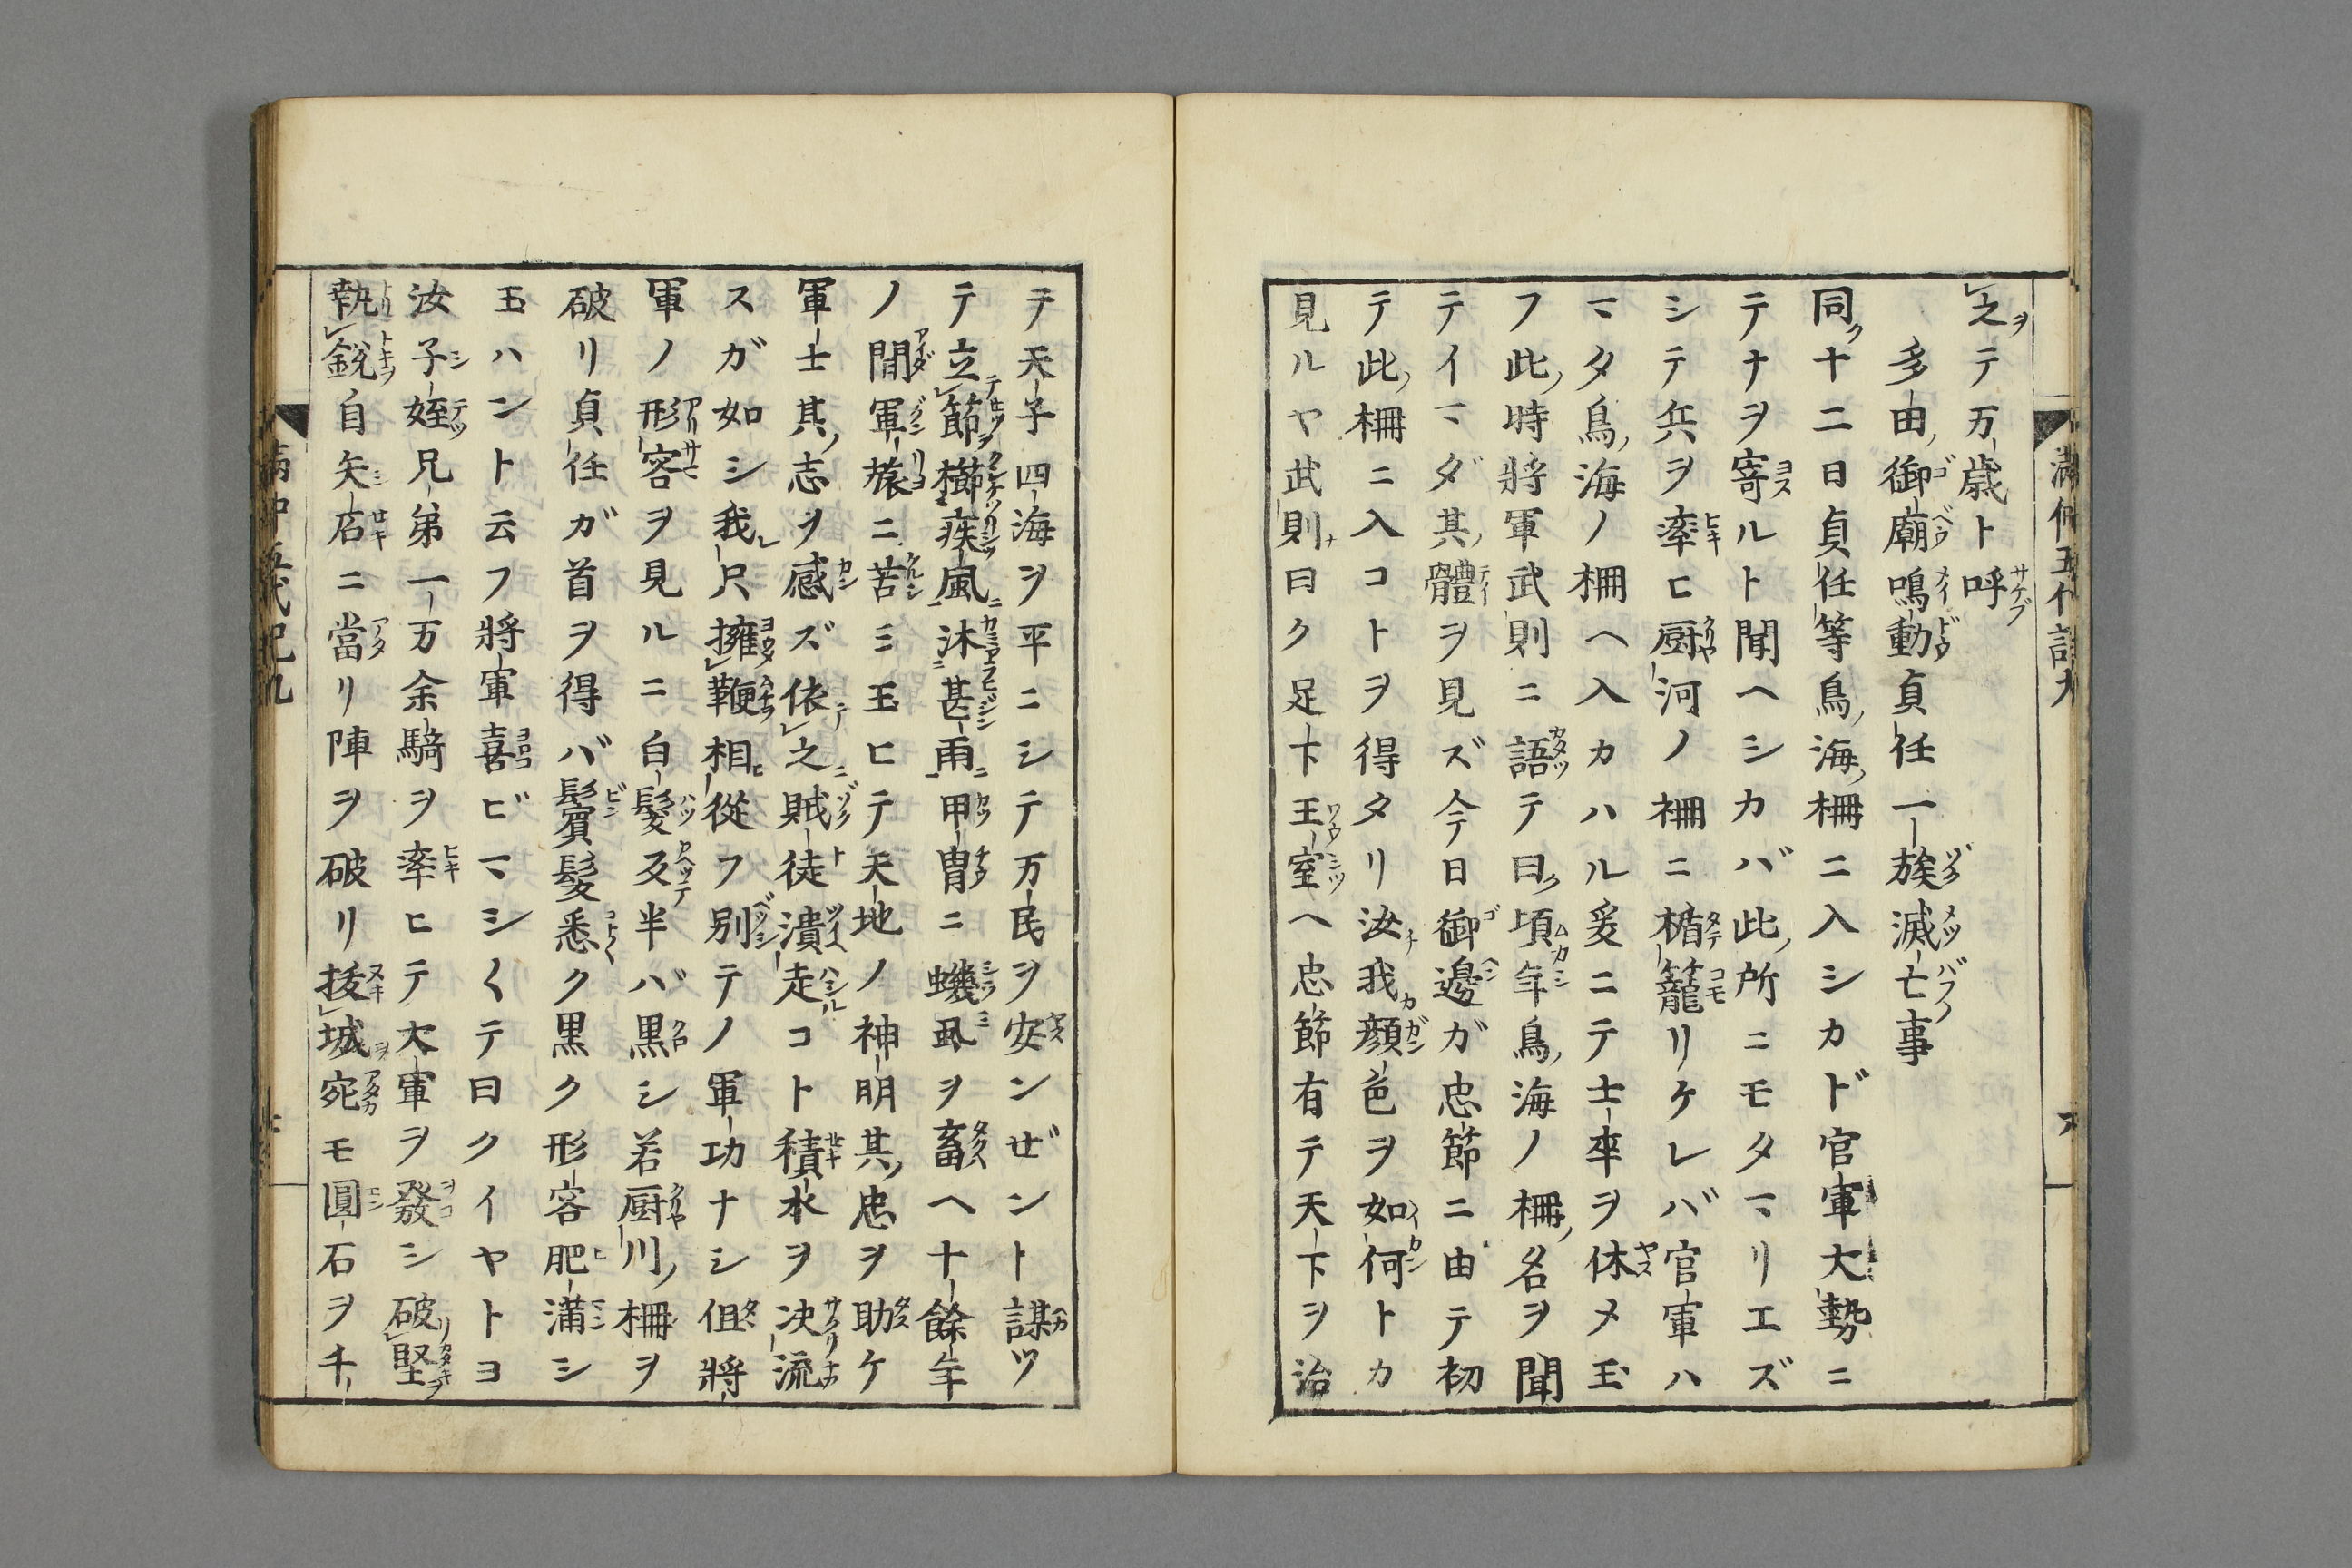 之ヲテ万歳ト呼
多由ノ御廟鳴動貞任一族滅亡事
同ク十二日貞任等鳥ノ海ノ柵ニ入シカド官軍大勢ニ
テナヲ寄ルト聞ヘシカバ此ノ所ニモタマリエズ
シテ兵ヲ率ヒ厨河ノ柵ニ楯籠リケレバ官軍ハ
マタ鳥ノ海ノ柵ヘ入カハル爰ニテ士卒ヲ休メ玉
フ此ノ時将軍武則ニ語テ曰ク頃年鳥ノ海ノ柵ノ名ヲ聞
テイマダ其ノ體ヲ見ズ今日御邊ガ忠節ニ由テ初
テ此ノ柵ニ入コトヲ得タリ汝チ我カ顔色ヲ如何トカ
見ルヤ武則曰ク足下王室ヘ忠節有テ天下ヲ治
テ天子四海ヲ平ニシテ万民ヲ安ンゼント謀ツ
テ立節櫛疾風ニ沐甚雨ニ甲冑ニ蟣虱ヲ畜ヘ十餘年
ノ間軍旅ニ苦ミ玉ヒテ天地ノ神明其ノ忠ヲ助ケ
軍士其ノ志ヲ感ズ依テ之ニ賊徒潰走コト積水ヲ决流
スガ如シ我レ只擁鞭相從フ別テノ軍功ナシ伹將
軍ノ形容ヲ見ルニ白髮反半バ黒シ若厨川ノ柵ヲ
破リ貞任ガ首ヲ得バ鬢髮悉ク黒ク形容肥満シ
玉ハント云フ將軍喜ビマシ〱テ曰クイヤトヨ
汝子姪兄弟一万余騎ヲ率ヒテ大軍ヲ發シ破リ堅ヲ
執鋭自矢石ニ當リ陣ヲ破リ抜城ヲ宛モ圓石ヲ千